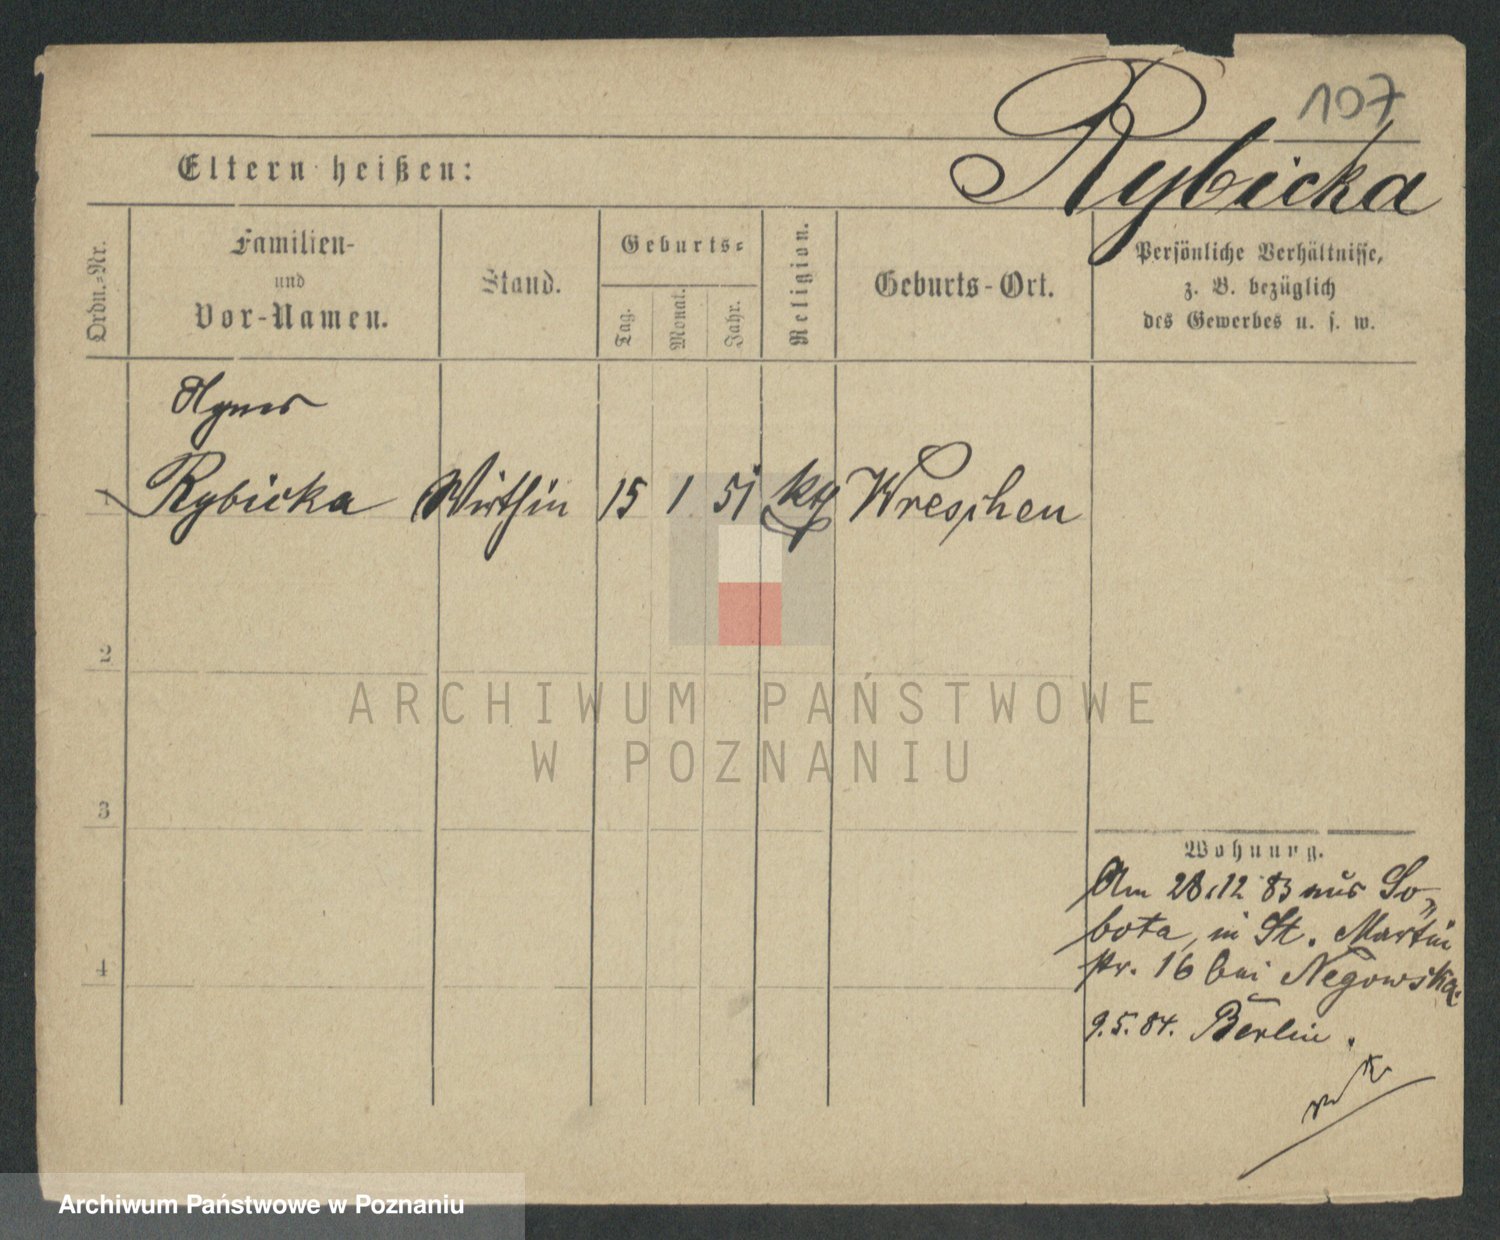 107
Rybicka
Eltern heißen:
Ordn.-Nr.
Familien-
und
Vor-Namen.
Stand.
Geburts-
Tag.
Monat.
Jahr.
Religion.
Geburts-Ort.
Persönliche Verhältnisse,
z. B. bezüglich
des Gewerbes u. s. w.
Agnes
1 Rybicka Wirthin 15 1 51 kth Wreschen
2
ARCHIWUM PAŃSTWOWE
W POZNANIU
3
Wohnung.
Am 28.12 83 aus So-
bota, in St. Martin
str. 16 bei Negowska.
4
9.5.84. Berlin.
Archiwum Państwowe w Poznaniu